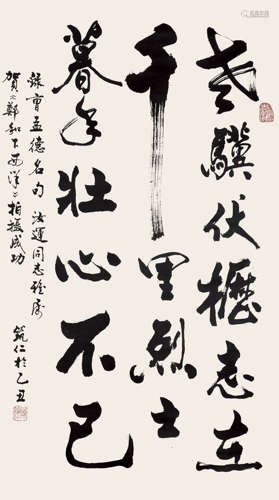 老骥伏櫪志在
千里烈士
暮年壮心不已
錄曹孟德名句 汝運同志雅属
賀《鄭和下西洋》拍攝成功
筑仁於乙丑